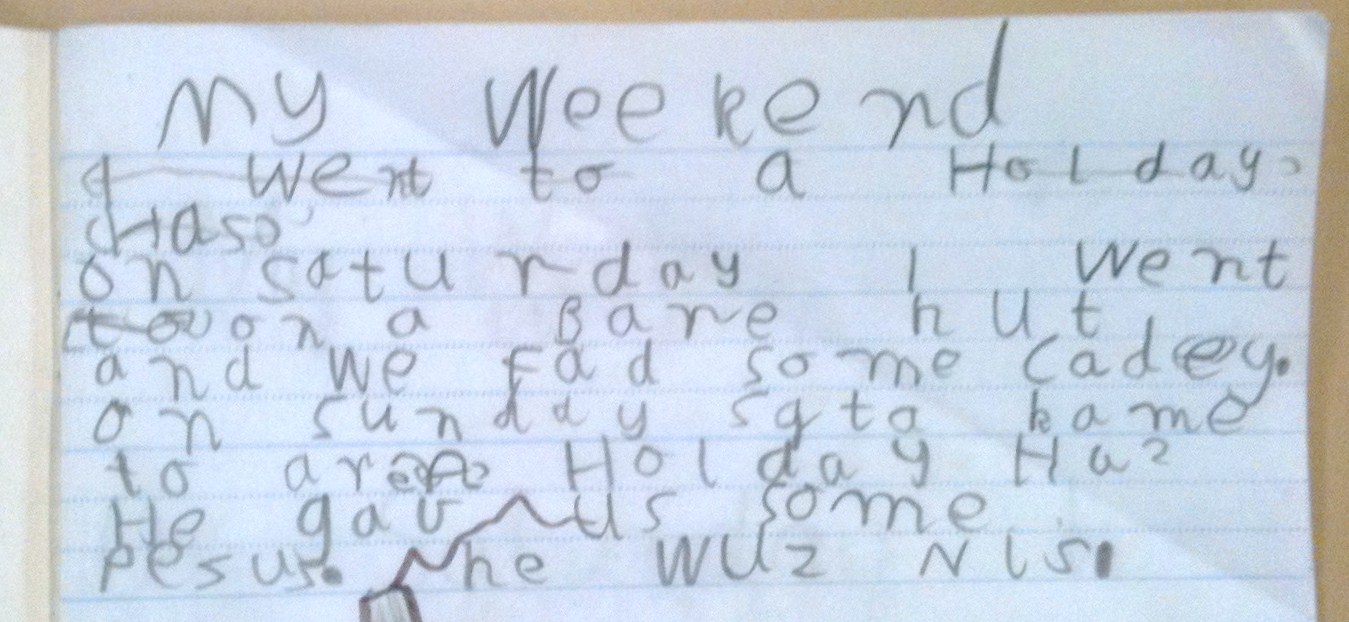 My Weekend
I went to a Holday
Haso
on saturday I went
to on a Bare hut
and we Fad some Cadey.
on sunday sata kame
to are Holday Haz
He gav us some
Pesus. he wuz Nis.